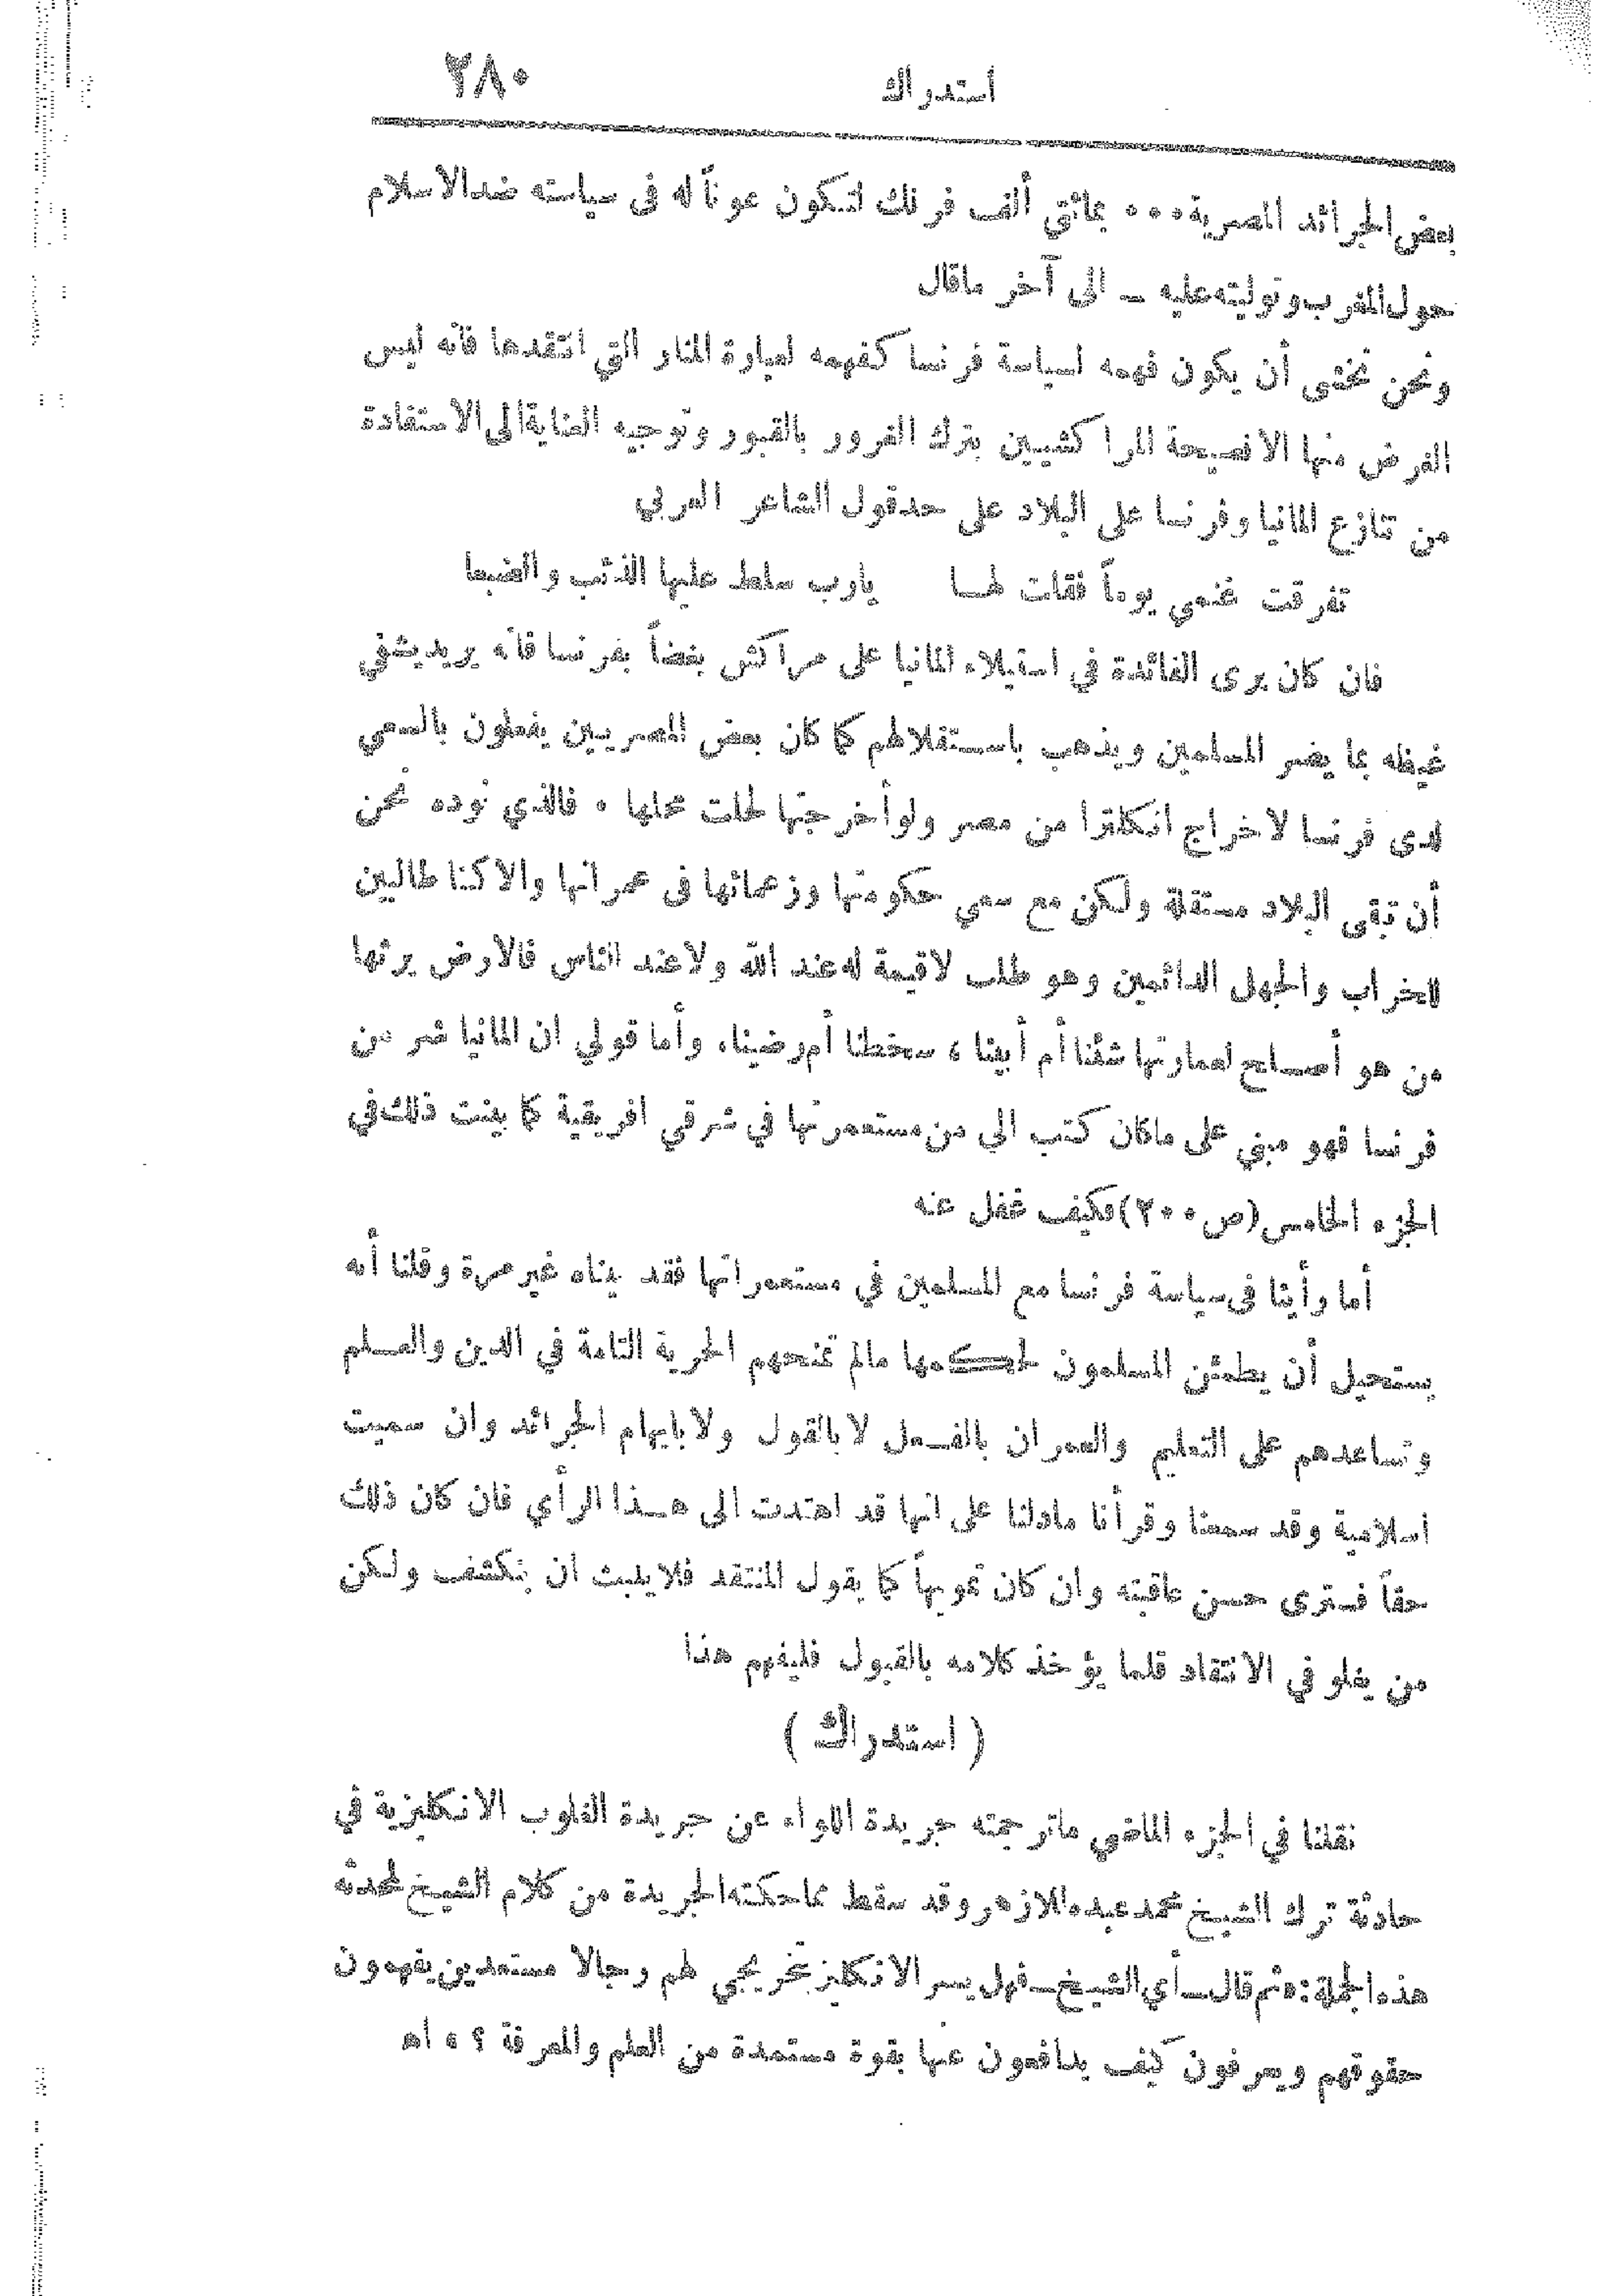 استدراك ٢٨٠
بعض الجرائد المصرية ٠٠٠ بمائتي ألف فرنك لتكون عوناً له فى سياسته ضد الاسلام
حول المغرب وتوليته عليه ــ الى آخر ماقال
ونحن نخشى أن يكون فهمه لسياسة فرنسا كفهمه لعبارة المنار التي انتقدها فانه ليس
الغرض منها الا نصيحة المراكشيين بترك الغرور بالقبور وتوجيه العناية الى الاستفادة
من تنازع المانيا وفرنسا على البلاد على حد قول الشاعر العربي
تفرقت غنمي يوماً فقلت لهـا يارب سلط عليها الذئب والضبعا
فان كان يرى الفائدة في استيلاء المانيا على مراكش بغضاً بفرنسا فانه يريد يشفي
غيظه بما يضر المسلمين ويذهب باستقلالهم كما كان بعض المصريين يفعلون بالسعي
لدى فرنسا لاخراج انكلترا من مصر ولو أخرجتها لحلت محلها ٠ فالذي نوده نحن
أن تبقى البلاد مستقلة ولكن مع سعي حكومتها وزعمائها فى عمرانها والا كنا طالبين
للخراب والجهل الدائمين وهو طلب لاقيمة له عند الله ولا عند الناس فالارض يرثها
من هو أصـلح لعمارتها شئنا أم أبينا ، سخطنا أم رضينا، وأما قولي ان المانيا شر من
فرنسا فهو مبني على ماكان كتب الي من مستعمرتها في شرقي افريقية كما بينت ذلك في
الجزء الخامس (ص ٢٠٠) فكيف غفل عنه
أما رأينا فى سياسة فرنسا مع المسلمين في مستعمراتها فقد بيناه غير مرة وقلنا أنه
يستحيل أن يطمئن المسلمون لحكمها مالم تمنحهم الحرية التامة في الدين والعـلم
وتساعدهم على التعليم والعمران بالفـعل لا بالقول ولا بايهام الجرائد وان سميت
اسلامية وقد سمعنا وقرأنا مادلنا على انها قد اهتدت الى هـذا الرأي فان كان ذلك
حقاً فسترى حسن عاقبته وان كان تمويهاً كما يقول المنتقد فلا يلبث ان ينكشف ولكن
من يغلو في الانتقاد قلما يؤخذ كلامه بالقبول فليفهم هذا
( استدراك )
نقلنا في الجزء الماضي ماترجمته جريدة اللواء عن جريدة الغلوب الانكليزية في
حادثة ترك الشيخ محمد عبده للازهر وقد سقط مما حكته الجريدة من كلام الشيخ لمحدثه
هذه الجملة : « ثم قال ــ أي الشيخ ــ فهل يسر الانكليز تخريجي لهم رجالا مستعدين يفهمون
حقوقهم ويعرفون كيف يدافعون عنها بقوة مستمدة من العلم والمعرفة ؟ » اه